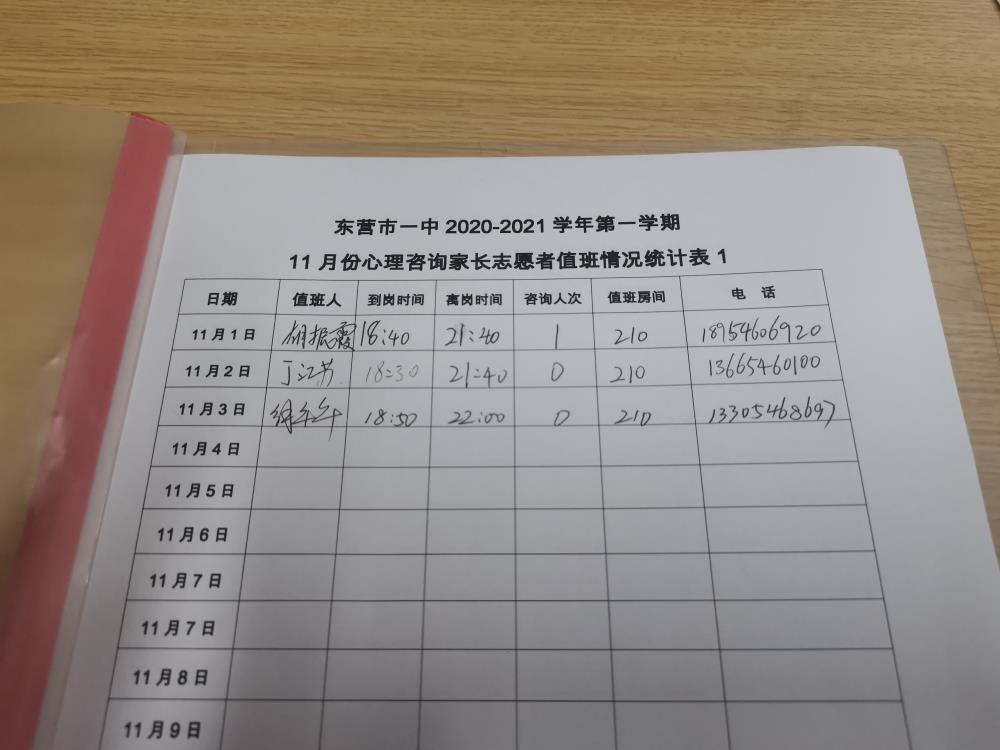 东营市一中 2020-2021 学年第一学期
11 月份心理咨询家长志愿者值班情况统计表 1
日期 值班人 到岗时间 离岗时间 咨询人次 值班房间 电 话
11 月 1 日 胡振霞 18:40 21:40 1 210 18954606920
11 月 2 日 丁江苏 18:30 21:40 0 210 13665460100
11 月 3 日 18:50 22:00 0 210 13305468697
11 月 4 日
11 月 5 日
11 月 6 日
11 月 7 日
11 月 7 日
11 月 8 日
11 月 9 日